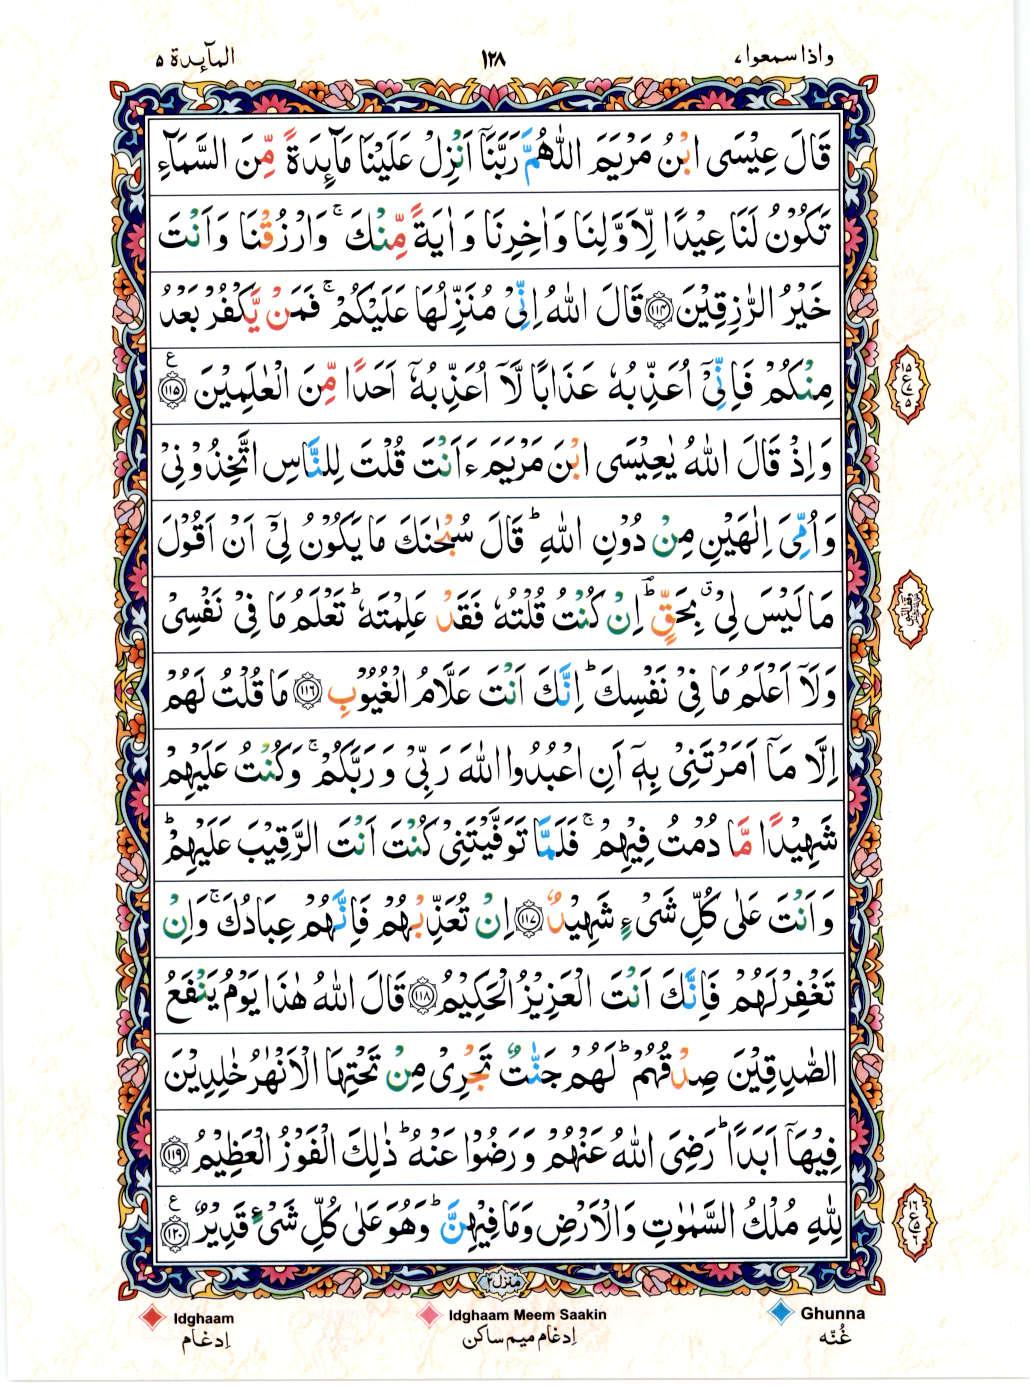 واذا سمعوا ٧
١٢٨
المآىِٕدة ٥
قَالَ عِيْسَى ابْنُ مَرْيَمَ اللّٰهُمَّ رَبَّنَآ اَنْزِلْ عَلَيْنَا مَآىِٕدَةً مِّنَ السَّمَآءِ
تَكُوْنُ لَنَا عِيْدًا لِّاَوَّلِنَا وَاٰخِرِنَا وَاٰيَةً مِّنْكَ ۚ وَارْزُقْنَا وَاَنْتَ
خَيْرُ الرّٰزِقِيْنَ ﴿١١٤﴾ قَالَ اللّٰهُ اِنِّىْ مُنَزِّلُهَا عَلَيْكُمْ ۚ فَمَنْ يَّكْفُرْ بَعْدُ
مِنْكُمْ فَاِنِّىْٓ اُعَذِّبُهٗ عَذَابًا لَّآ اُعَذِّبُهٗٓ اَحَدًا مِّنَ الْعٰلَمِيْنَ ﴿١١٥﴾ ع
وَاِذْ قَالَ اللّٰهُ يٰعِيْسَى ابْنَ مَرْيَمَ ءَاَنْتَ قُلْتَ لِلنَّاسِ اتَّخِذُوْنِىْ
وَاُمِّىَ اِلٰهَيْنِ مِنْ دُوْنِ اللّٰهِ ؕ قَالَ سُبْحٰنَكَ مَا يَكُوْنُ لِىْٓ اَنْ اَقُوْلَ
مَا لَيْسَ لِىْ ۗ بِحَقٍّ ؕ اِنْ كُنْتُ قُلْتُهٗ فَقَدْ عَلِمْتَهٗ ؕ تَعْلَمُ مَا فِىْ نَفْسِىْ
وَلَآ اَعْلَمُ مَا فِىْ نَفْسِكَ ؕ اِنَّكَ اَنْتَ عَلَّامُ الْغُيُوْبِ ﴿١١٦﴾ مَا قُلْتُ لَهُمْ
اِلَّا مَآ اَمَرْتَنِىْ بِهٖٓ اَنِ اعْبُدُوا اللّٰهَ رَبِّىْ وَرَبَّكُمْ ۚ وَكُنْتُ عَلَيْهِمْ
شَهِيْدًا مَّا دُمْتُ فِيْهِمْ ۚ فَلَمَّا تَوَفَّيْتَنِىْ كُنْتَ اَنْتَ الرَّقِيْبَ عَلَيْهِمْ ؕ
وَاَنْتَ عَلٰى كُلِّ شَىْءٍ شَهِيْدٌ ﴿١١٧﴾ اِنْ تُعَذِّبْهُمْ فَاِنَّهُمْ عِبَادُكَ ۚ وَاِنْ
تَغْفِرْ لَهُمْ فَاِنَّكَ اَنْتَ الْعَزِيْزُ الْحَكِيْمُ ﴿١١٨﴾ قَالَ اللّٰهُ هٰذَا يَوْمُ يَنْفَعُ
الصّٰدِقِيْنَ صِدْقُهُمْ ؕ لَهُمْ جَنّٰتٌ تَجْرِىْ مِنْ تَحْتِهَا الْاَنْهٰرُ خٰلِدِيْنَ
فِيْهَآ اَبَدًا ؕ رَضِىَ اللّٰهُ عَنْهُمْ وَرَضُوْا عَنْهُ ؕ ذٰلِكَ الْفَوْزُ الْعَظِيْمُ ﴿١١٩﴾
لِلّٰهِ مُلْكُ السَّمٰوٰتِ وَالْاَرْضِ وَمَا فِيْهِنَّ ؕ وَهُوَ عَلٰى كُلِّ شَىْءٍ قَدِيْرٌ ﴿١٢٠﴾ ع
منزل ٢
Idghaam
Idghaam Meem Saakin
Ghunna
اِدغام
اِدغام میم ساکن
غُنّه